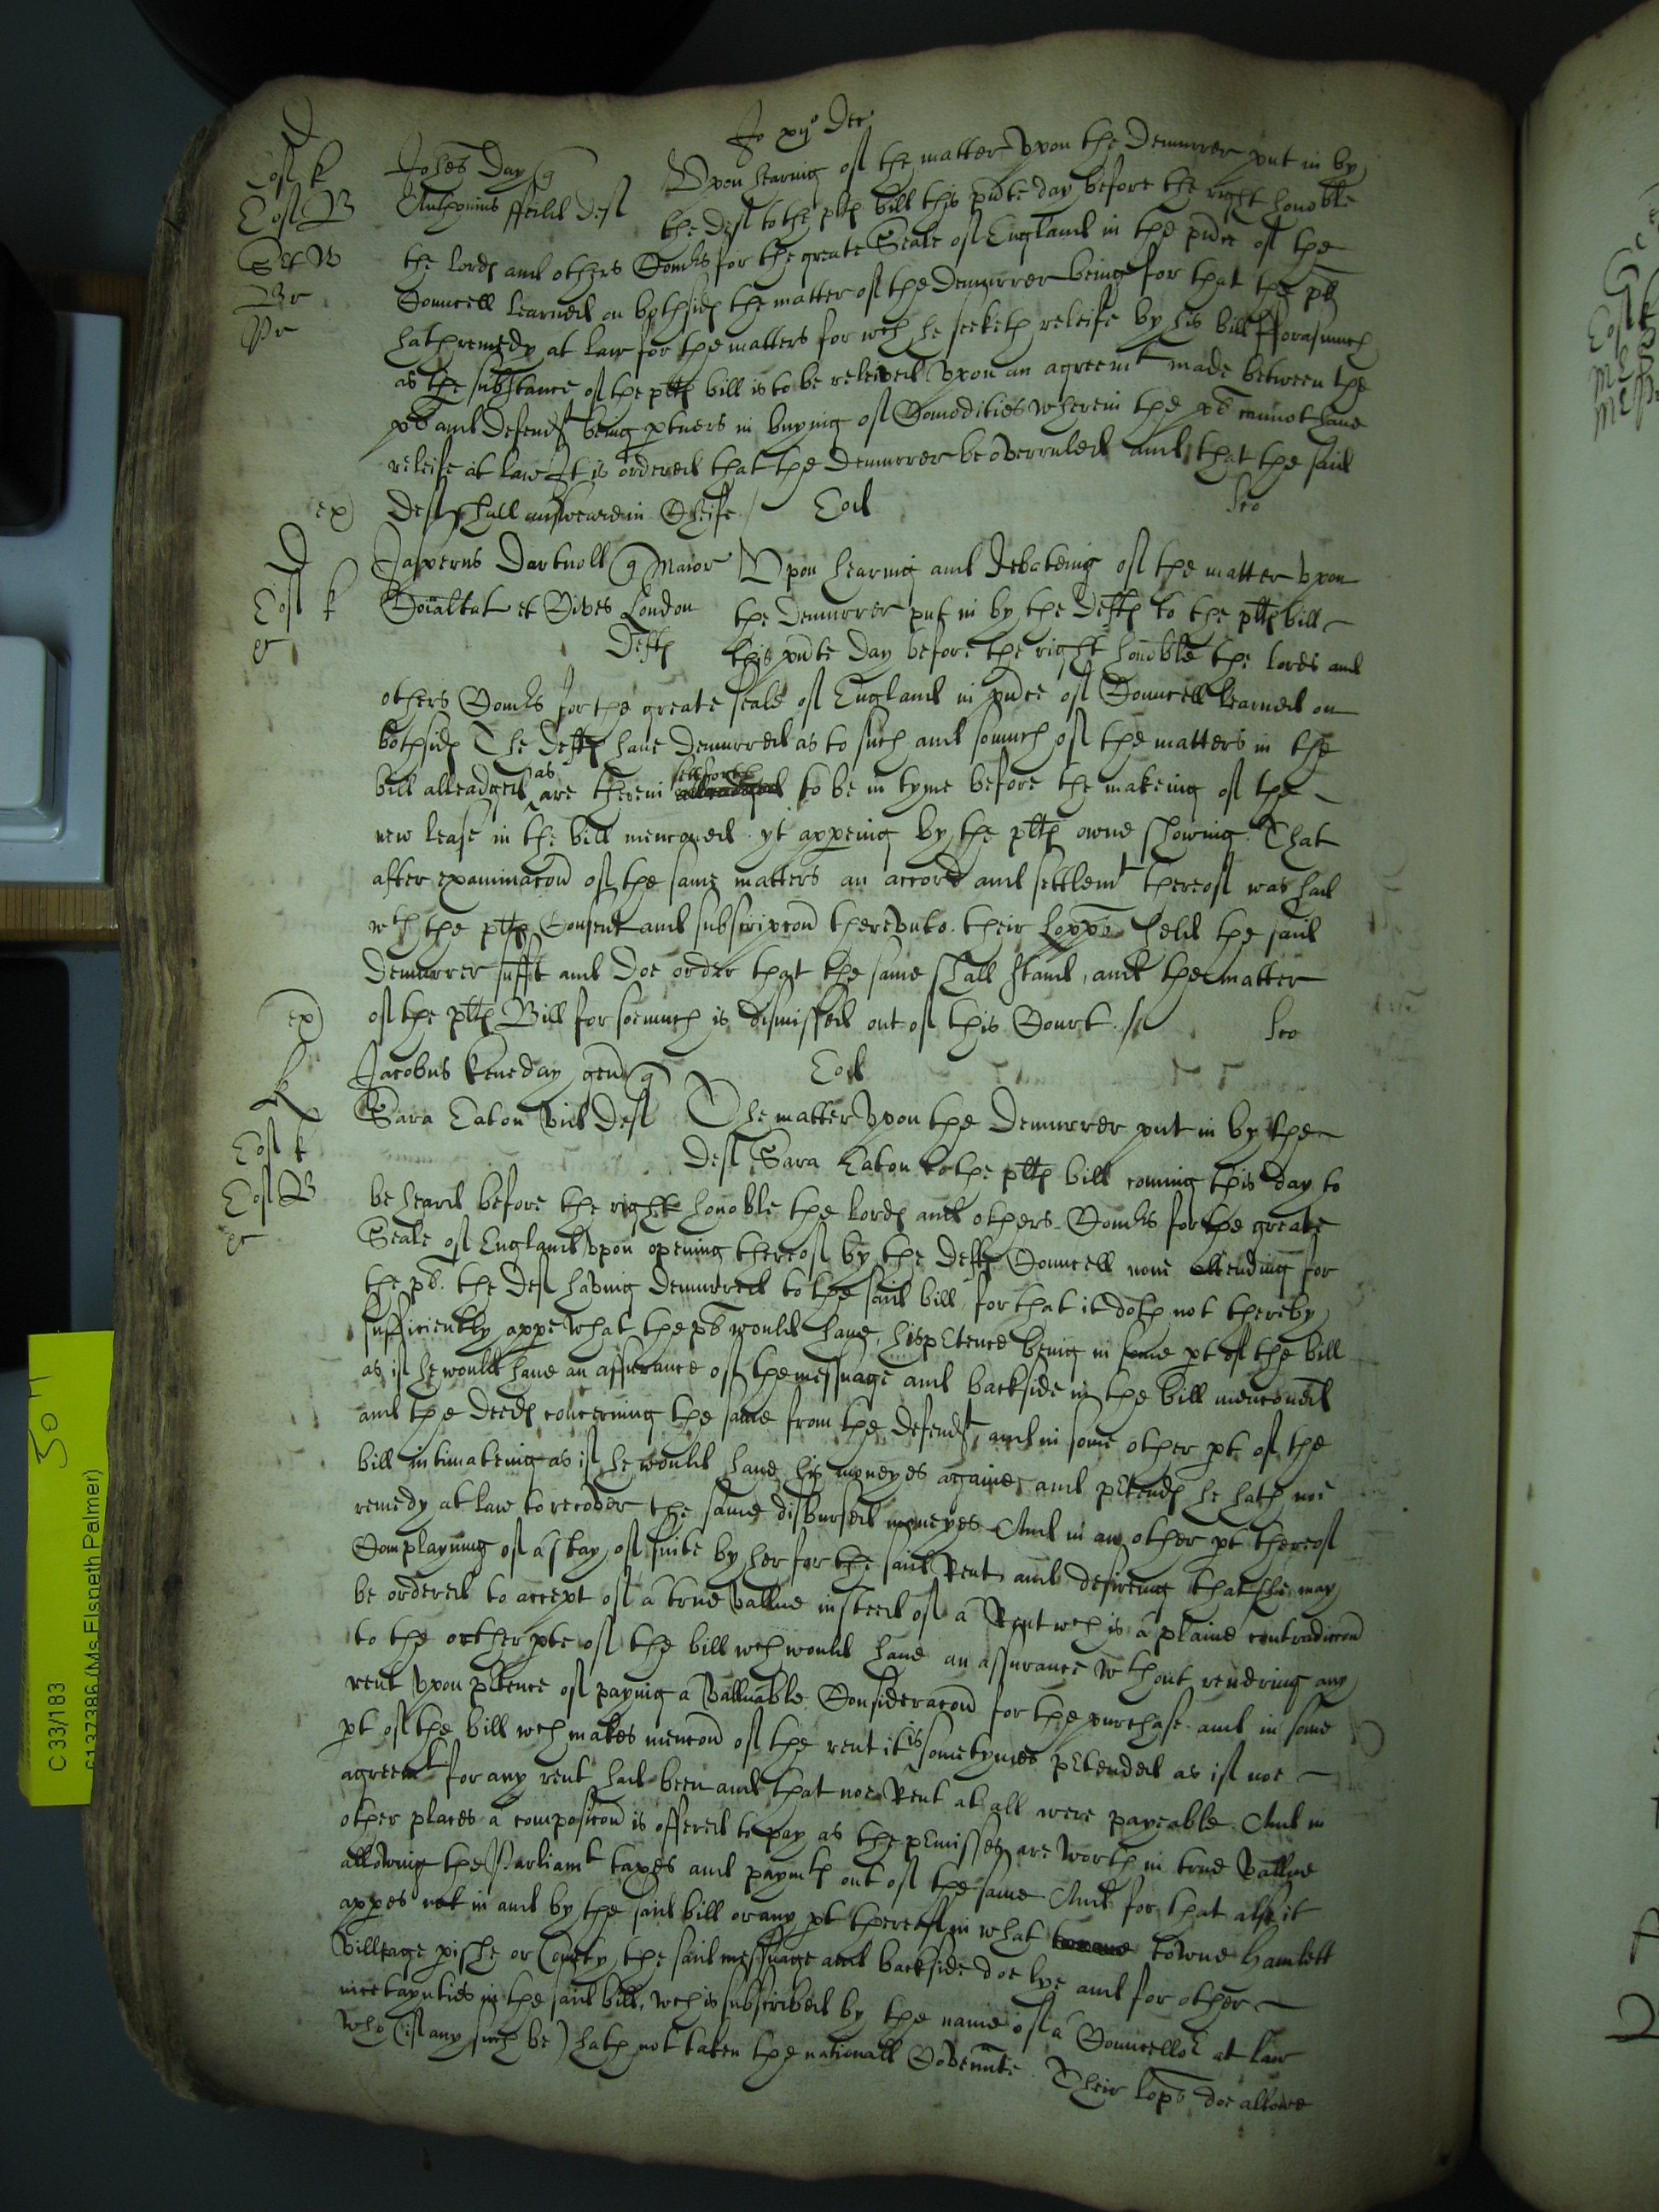 Jo xijo Dec
D
Coss k
Coss B
Sct W
Br
Pr
Johes Day q
Anthonius ffeild deft
Vpon hearing of the matter vpon the Demurrer put in by
the deft to the pltes bill this pnte day before the right honoble
the lordes and others Comrs for the greate Seale of England in the pnce of the
Councell learned on bothsides the matter of the Demurrer being for that the plt
hath remedy at law for the matters for wch he seeketh releife by his bill fforasmuch
as the substance of the pltes bill is to be releived vpon an agreemt made between the
plt and Defendt being ptners in buying of Comodities wherein the plt cannot have
releife at law It is ordered that the Demurrer be overruled and that the said
ex) Deft shall answeare in Cheife / Eod
D
Coss k
er
Jasperus Dartnoll q Maior
Coialtat et Cives London
Deftes
Vpon hearing and debateing of the matter vpon
the Demurrer put in by the Deftes to the pltes bill
this pnte day before the right honoble the lords and
others Comrs for the greate seale of England in pnce of Councell learned on
bothsides The Deftes have demurred as to such and somuch of the matters in the
bill alleadged as are therein alleadged settforth to be in tyme before the makeing of the
new lease in the bill menconed yt appeing by the pltes owne showing That
after examinacon of the same matters an accord and settlemt thereof was had
wth the pltes Consent and subscripcon therevnto their Lopps held the said
Demurrer suffit and doe order that the same shall stand, and the matter
ex) of the pltes Bill for soemuch is dismissed out of this Court ./
Eod
k
Coss k
Coss B
er
Jacobus keneday gen q
Sara Eaton vid Deft
The matter vpon the Demurrer put in by the
deft Sara Eaton to the pltes bill coming this day to
be heard before the right honoble the lordes and others Comrs for the greate
Seale of England vpon opening thereof by the deftes Councell none attending for
the plt. the deft having demurred to the said bill, for that it doth not thereby
sufficiently appe what the plt would have, his ptence being in some pt of the bill
as if he would have an assurance of the messuage and backside in the bill menconed
and the deedes concerning the same from the defendt, and in some other pt of the
bill intimateing as if he would have his moneyes againe, and ptendes he hath noe
remedy at law to recover the same disbursed moneyes And in an other pt thereof
Complayning of a stay of suite by her for the said Rent and desireing that she may
be ordered to accept of a true vallue insteed of a Rent wch is a plaine contradiccon
to the other pte of the bill wch would have an assurance wthout rendring any
rent vpon ptence of paying a valluable Consideracon for the purchase and in some
pt of the bill wch makes mencon of the rent it is sometymes ptended as if noe
agreemt for any rent had been and that noe Rent at all were payeable. And in
other places a composicon is offered to pay as the pmisses are worth in true vallue
allowing the Parliamt taxes and paymts out of the same And for that also it
appes not in and by the said bill or any pt thereof in what towne Hamlett
villeage pishe or County the said messuage and backside doe lye and for other
incertaynties in the said bill, wch is subscribed by the name of a Councellor at law
who (if any such be) hath not taken the nationall Covennte. Their lopps doe allowe
C 33/183
(Ms Elspeth Palmer)